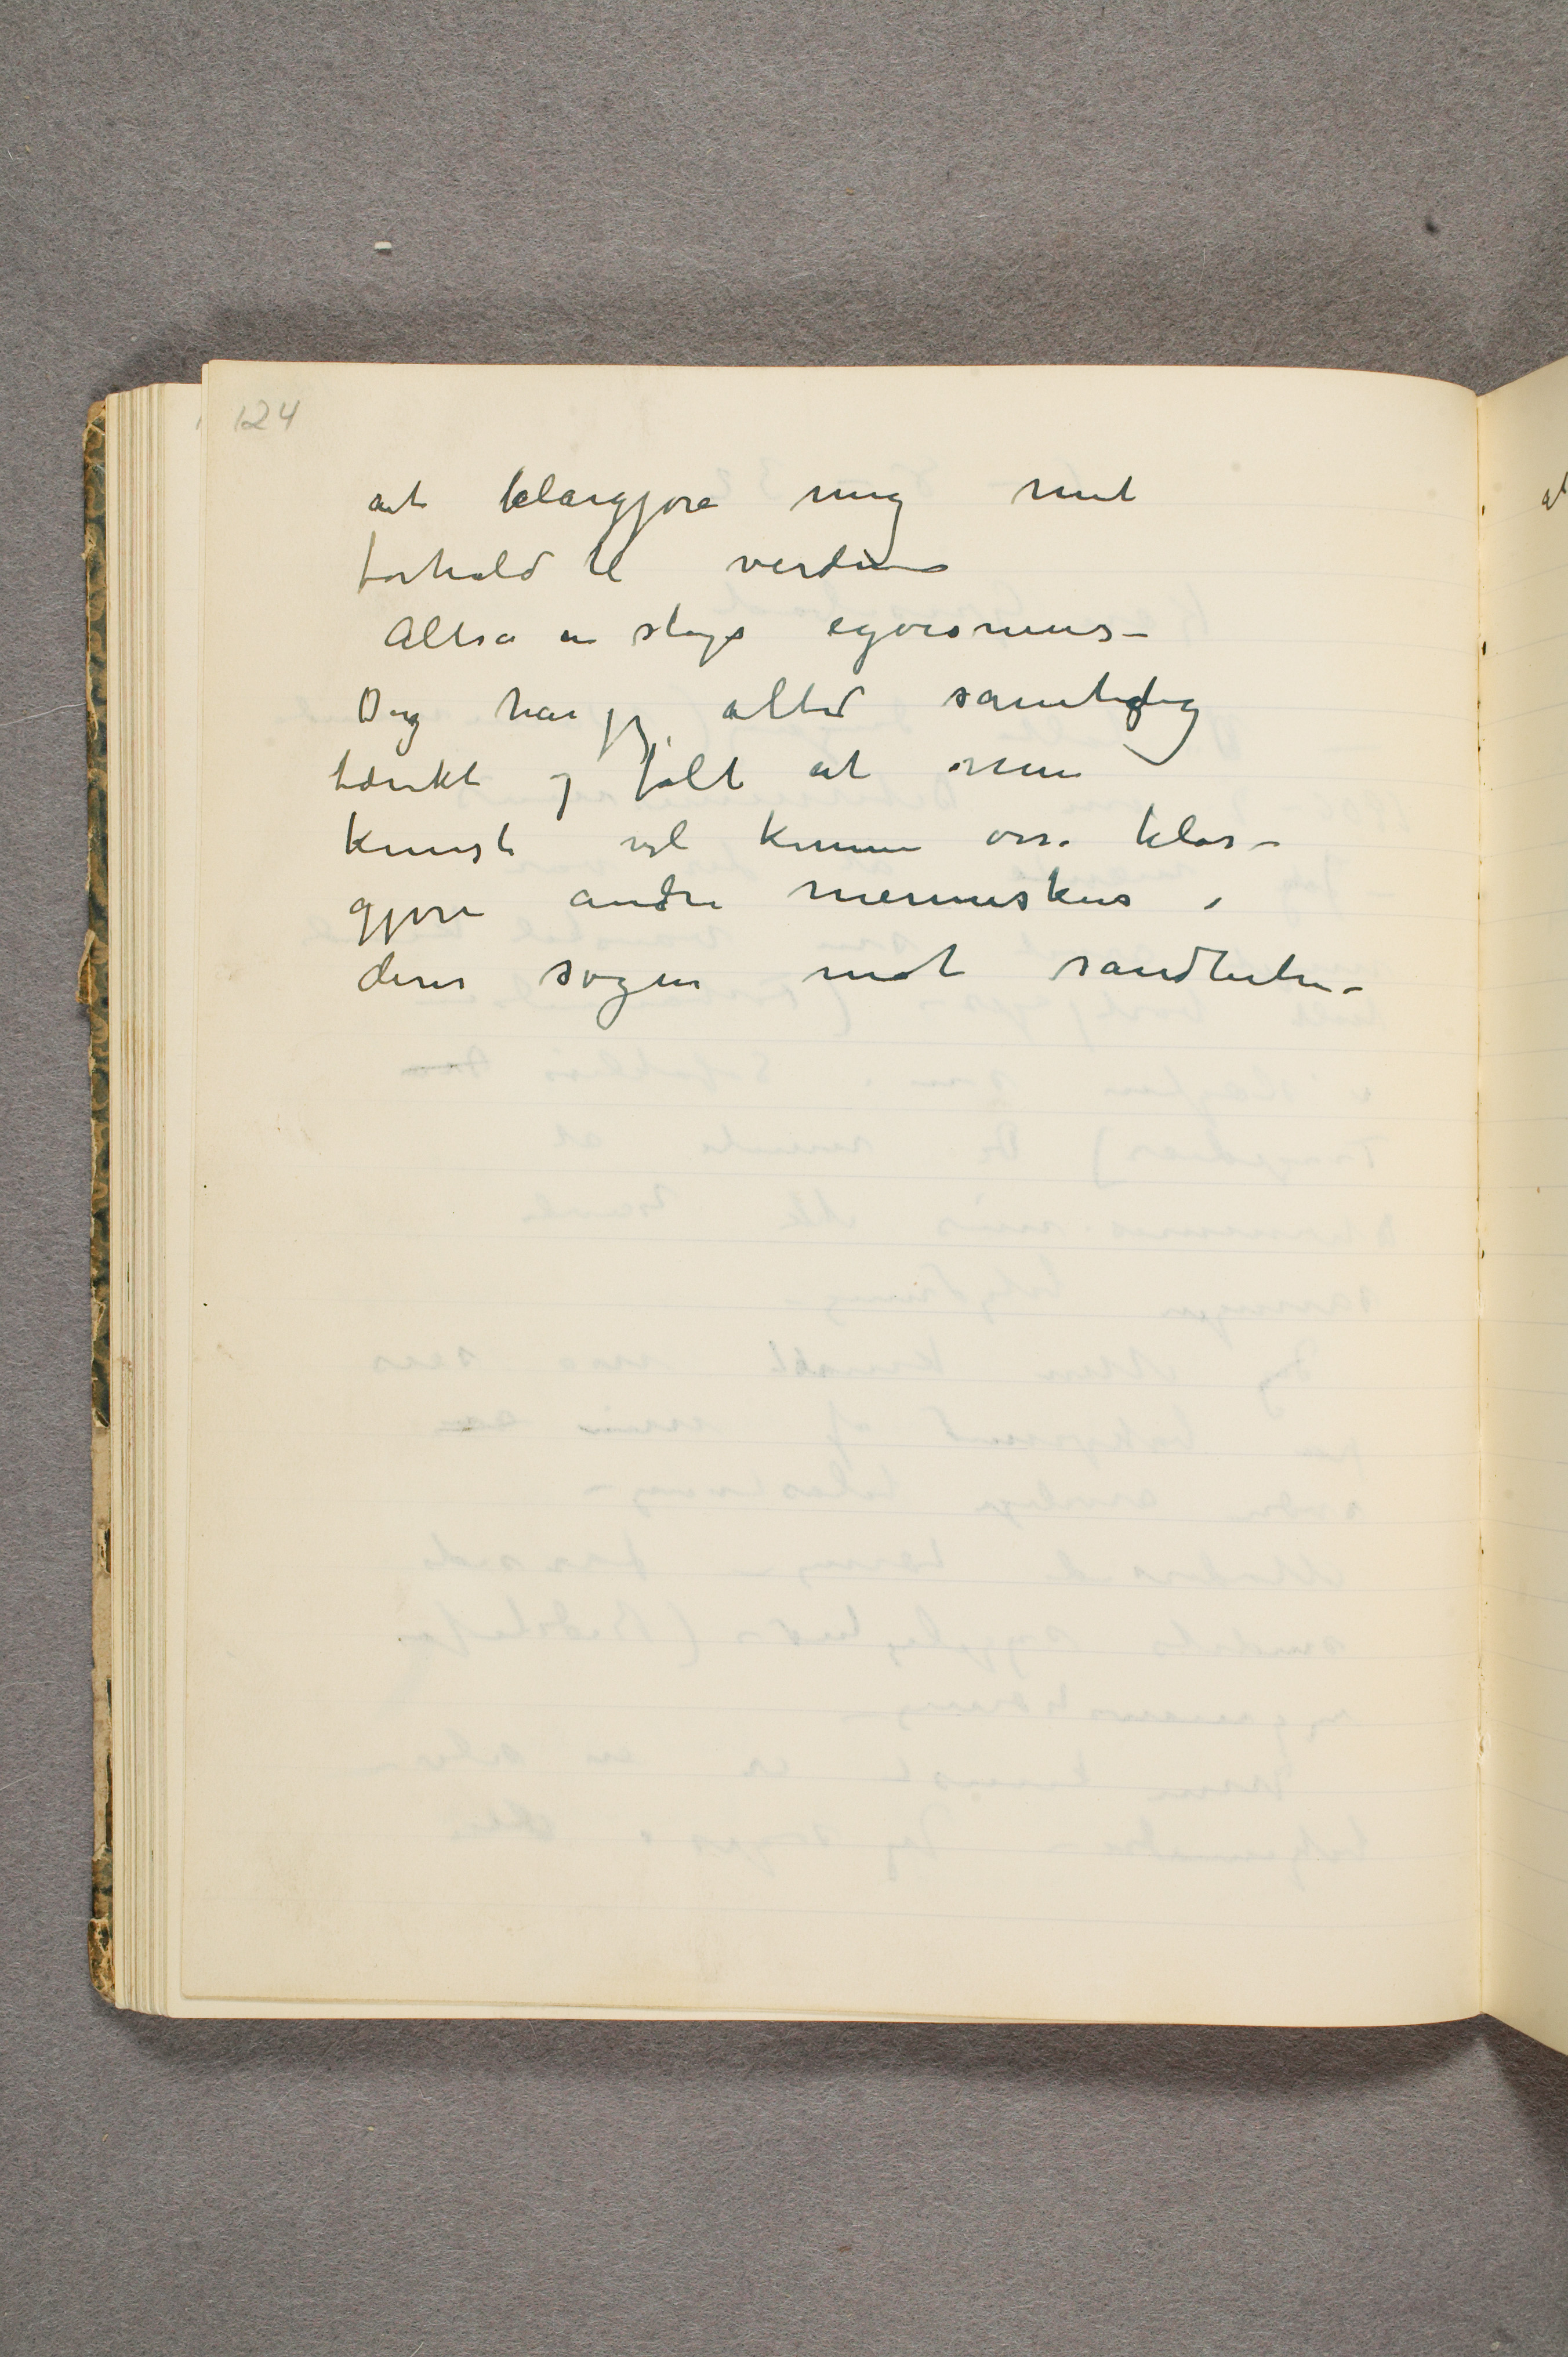 124
at klargjøre mig mit
forhold til verden
Altså en slags egoismus –
Dog har jeg altid samtidig
tænkt og følt at min
kunst vil kunne også klar-
gjøre andre menneskers i
deres søgen mot sandheten –